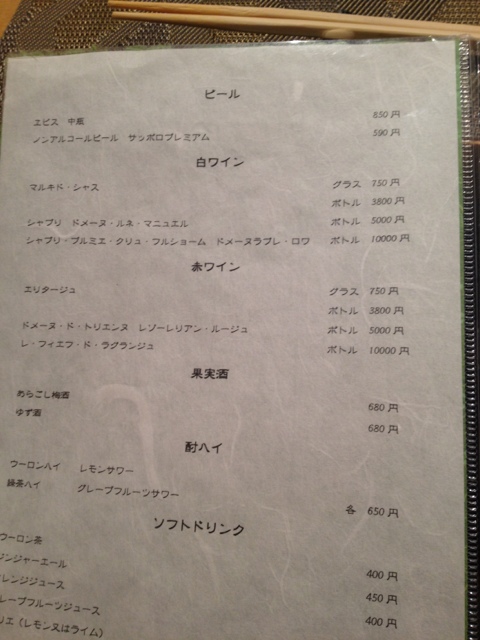 ビール
ヱビス 中瓶 850円
ノンアルコールビール サッポロプレミアム 590円
白ワイン
マルキド・シャス グラス 750円
ボトル 3800円
シャブリ ドメーヌ・ルネ・マニュエル ボトル 5000円
シャブリ・プルミエ・クリュ・フルショーム ドメーヌラブレ・ロワ ボトル 10000円
赤ワイン
エリタージュ グラス 750円
ボトル 3800円
ドメーヌ・ド・トリエンヌ レゾーレリアン・ルージュ ボトル 5000円
レ・フィエフ・ド・ラグランジュ ボトル 10000円
果実酒
あらごし梅酒 680円
ゆず酒 680円
酎ハイ
ウーロンハイ レモンサワー
緑茶ハイ グレープフルーツサワー 各 650円
ソフトドリンク
ウーロン茶 400円
ジンジャーエール 450円
レンジジュース 400円
レープフルーツジュース
リエ（レモン又はライム）